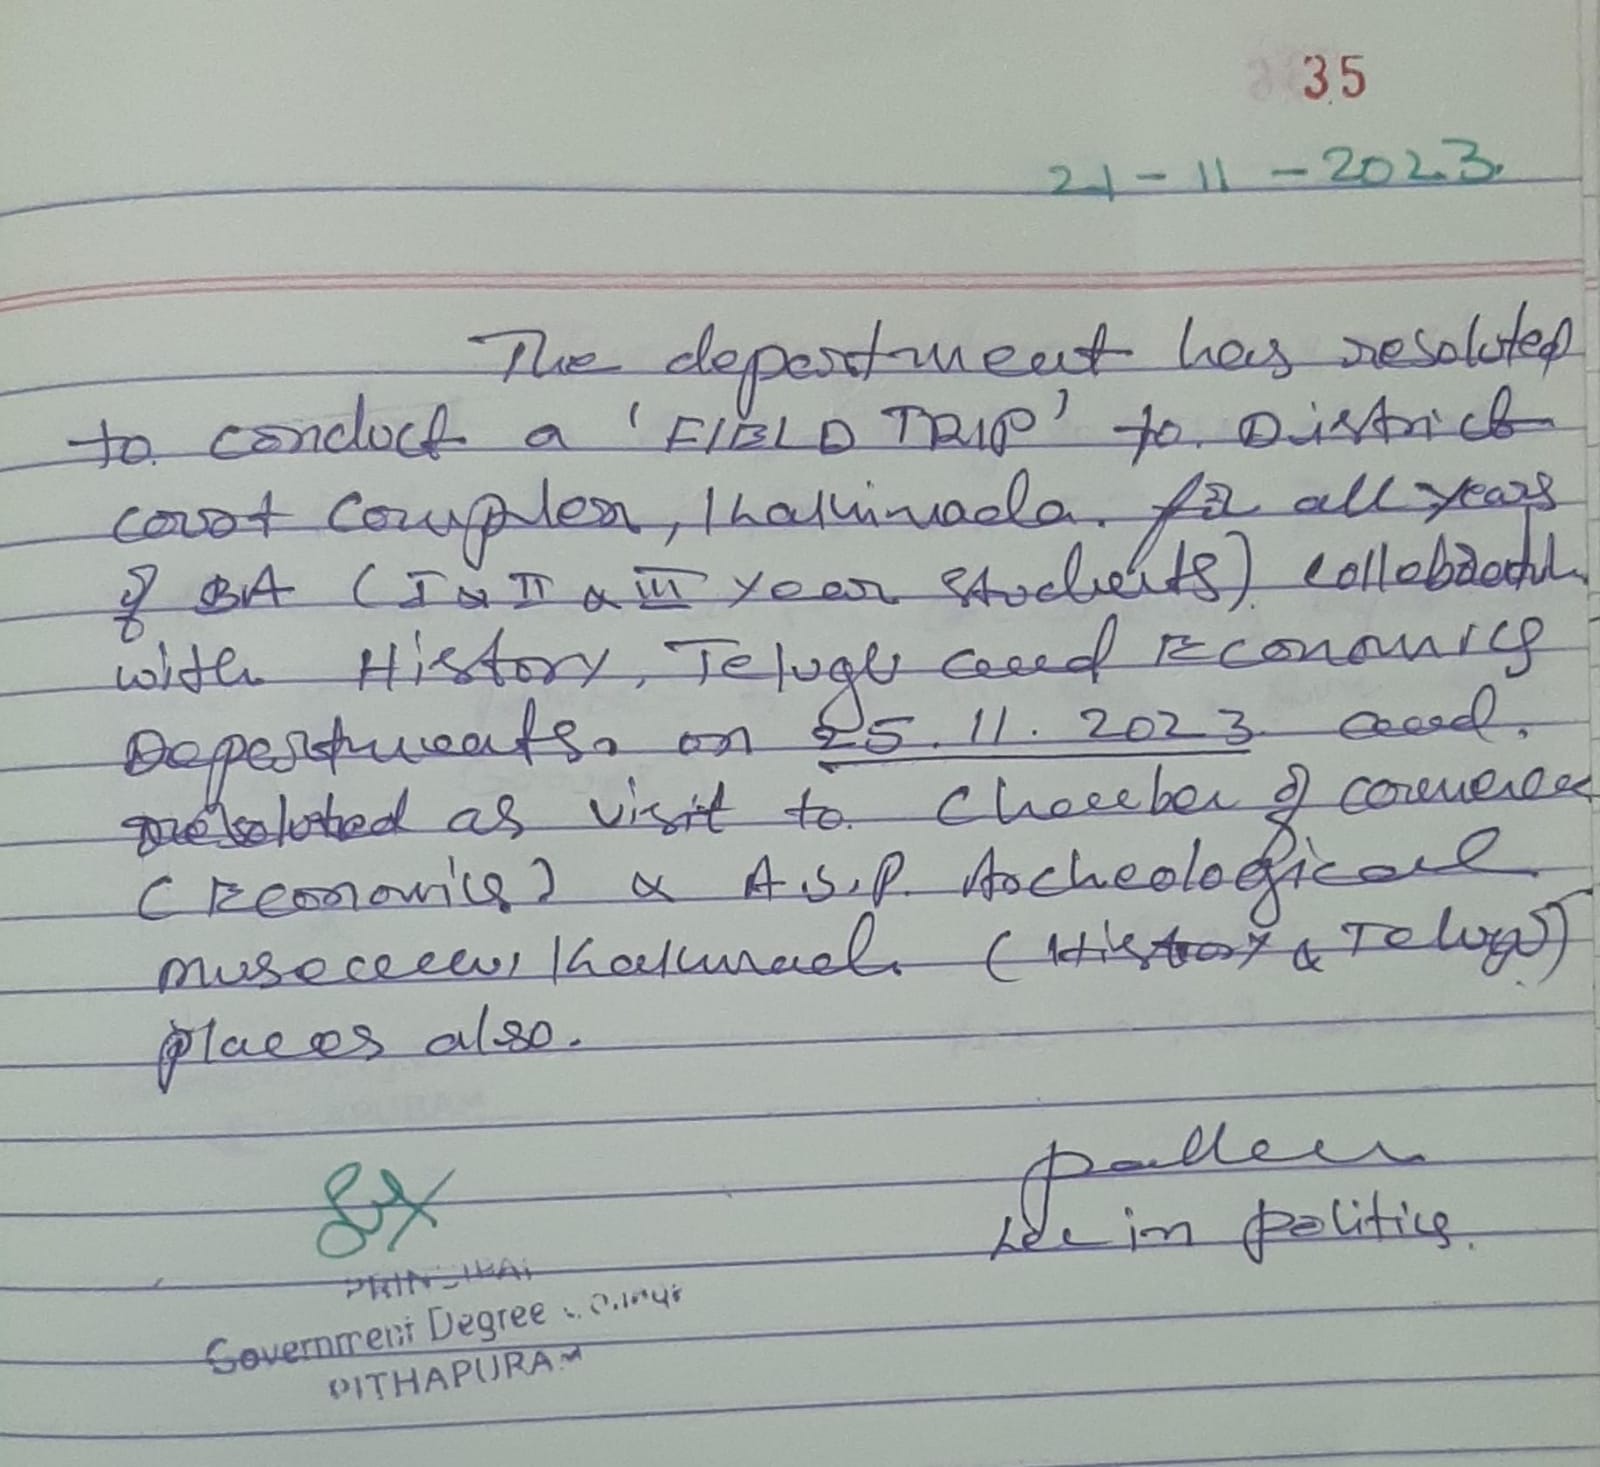 35
21-11-2023.
The department has resoluted
to conduct a 'FIELD TRIP' to District
court complex, Kakinada. for all years
of BA (I & II & III year students)
with History, Telugu and Economics
Departments. on 25.11.2023 and.
resoluted as visit to chamber of commerce
(Economics) & A.S.P. Archeological
museum, Kakinada. (History & Telugu)
places also.
in politics.
PRINCIPAL
Government Degree College
PITHAPURAM